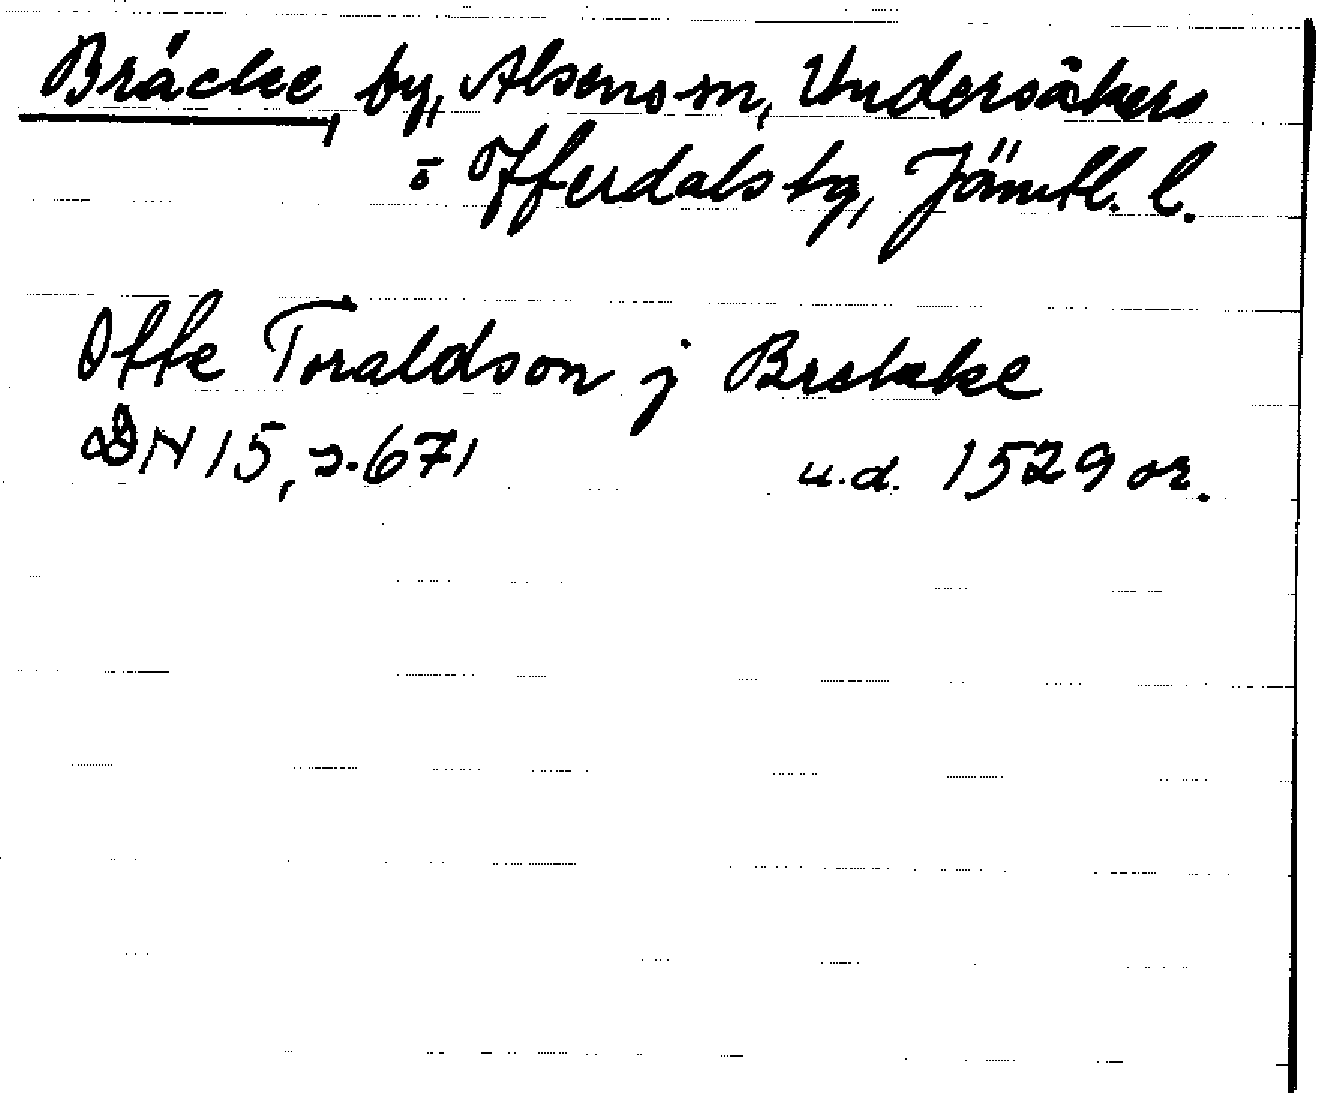 Bräcke, by, Alsens sn, Undersåkers
o Offerdals tg, Jämtl. l.
Offe Toraldson j Brekke
DN 15, s. 671 u.d. 1529 or.